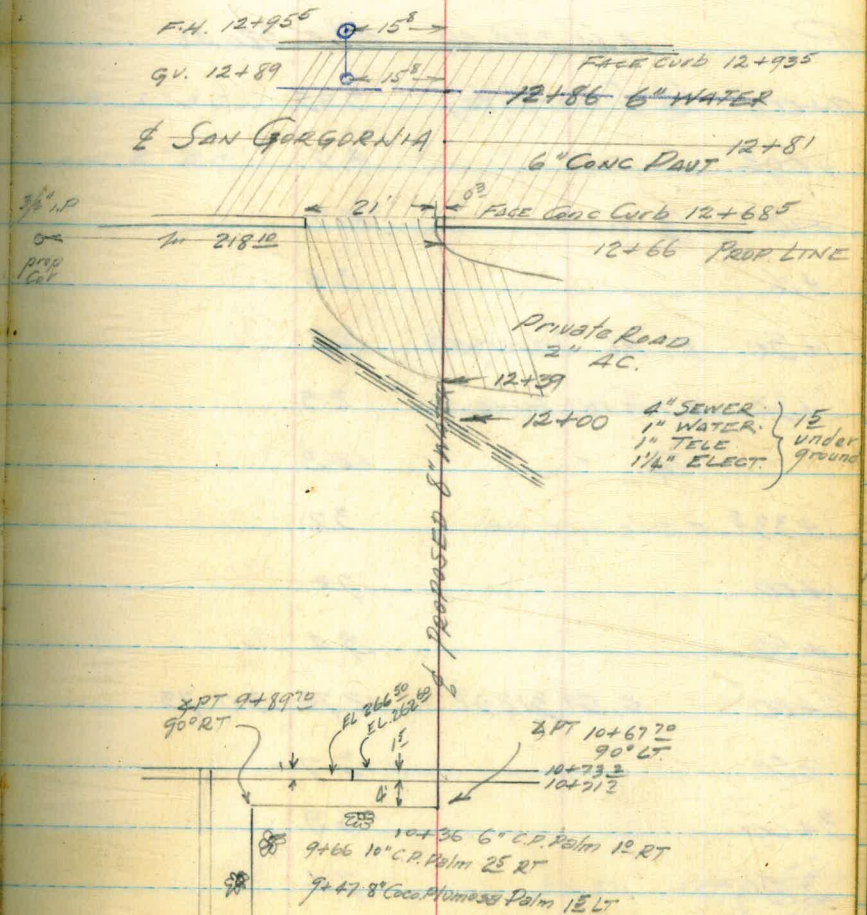 F.H. 12+95⁵ 15⁸
FACE CURB 12+935
G.V. 12+89 15⁸
12+86 6" WATER
℄ SAN GORGORNIA
12+81
6" CONC PAVT
21' 0³
FACE CONC CURB 12+68⁵
3/4" I.P
218¹⁰
12+66 PROP. LINE
prop
Cor
Private ROAD
2" AC.
12+39
12+00
4" SEWER
1" WATER
1" TELE
1¼" ELECT.
1⁵
under
ground
℄ PROPOSED 8" WATER
∡PT 9+89⁷⁰
90° RT
EL 266⁵⁰
EL. 262⁶⁹
1⁵
∡PT 10+67⁷⁰
90° LT.
10+73²
10+71²
4'
10+36 6" C.P. Palm 1⁰ RT
9+66 10" C.P. Palm 2⁵ RT
9+47 8" Coco Plumosa Palm 1⁵ LT